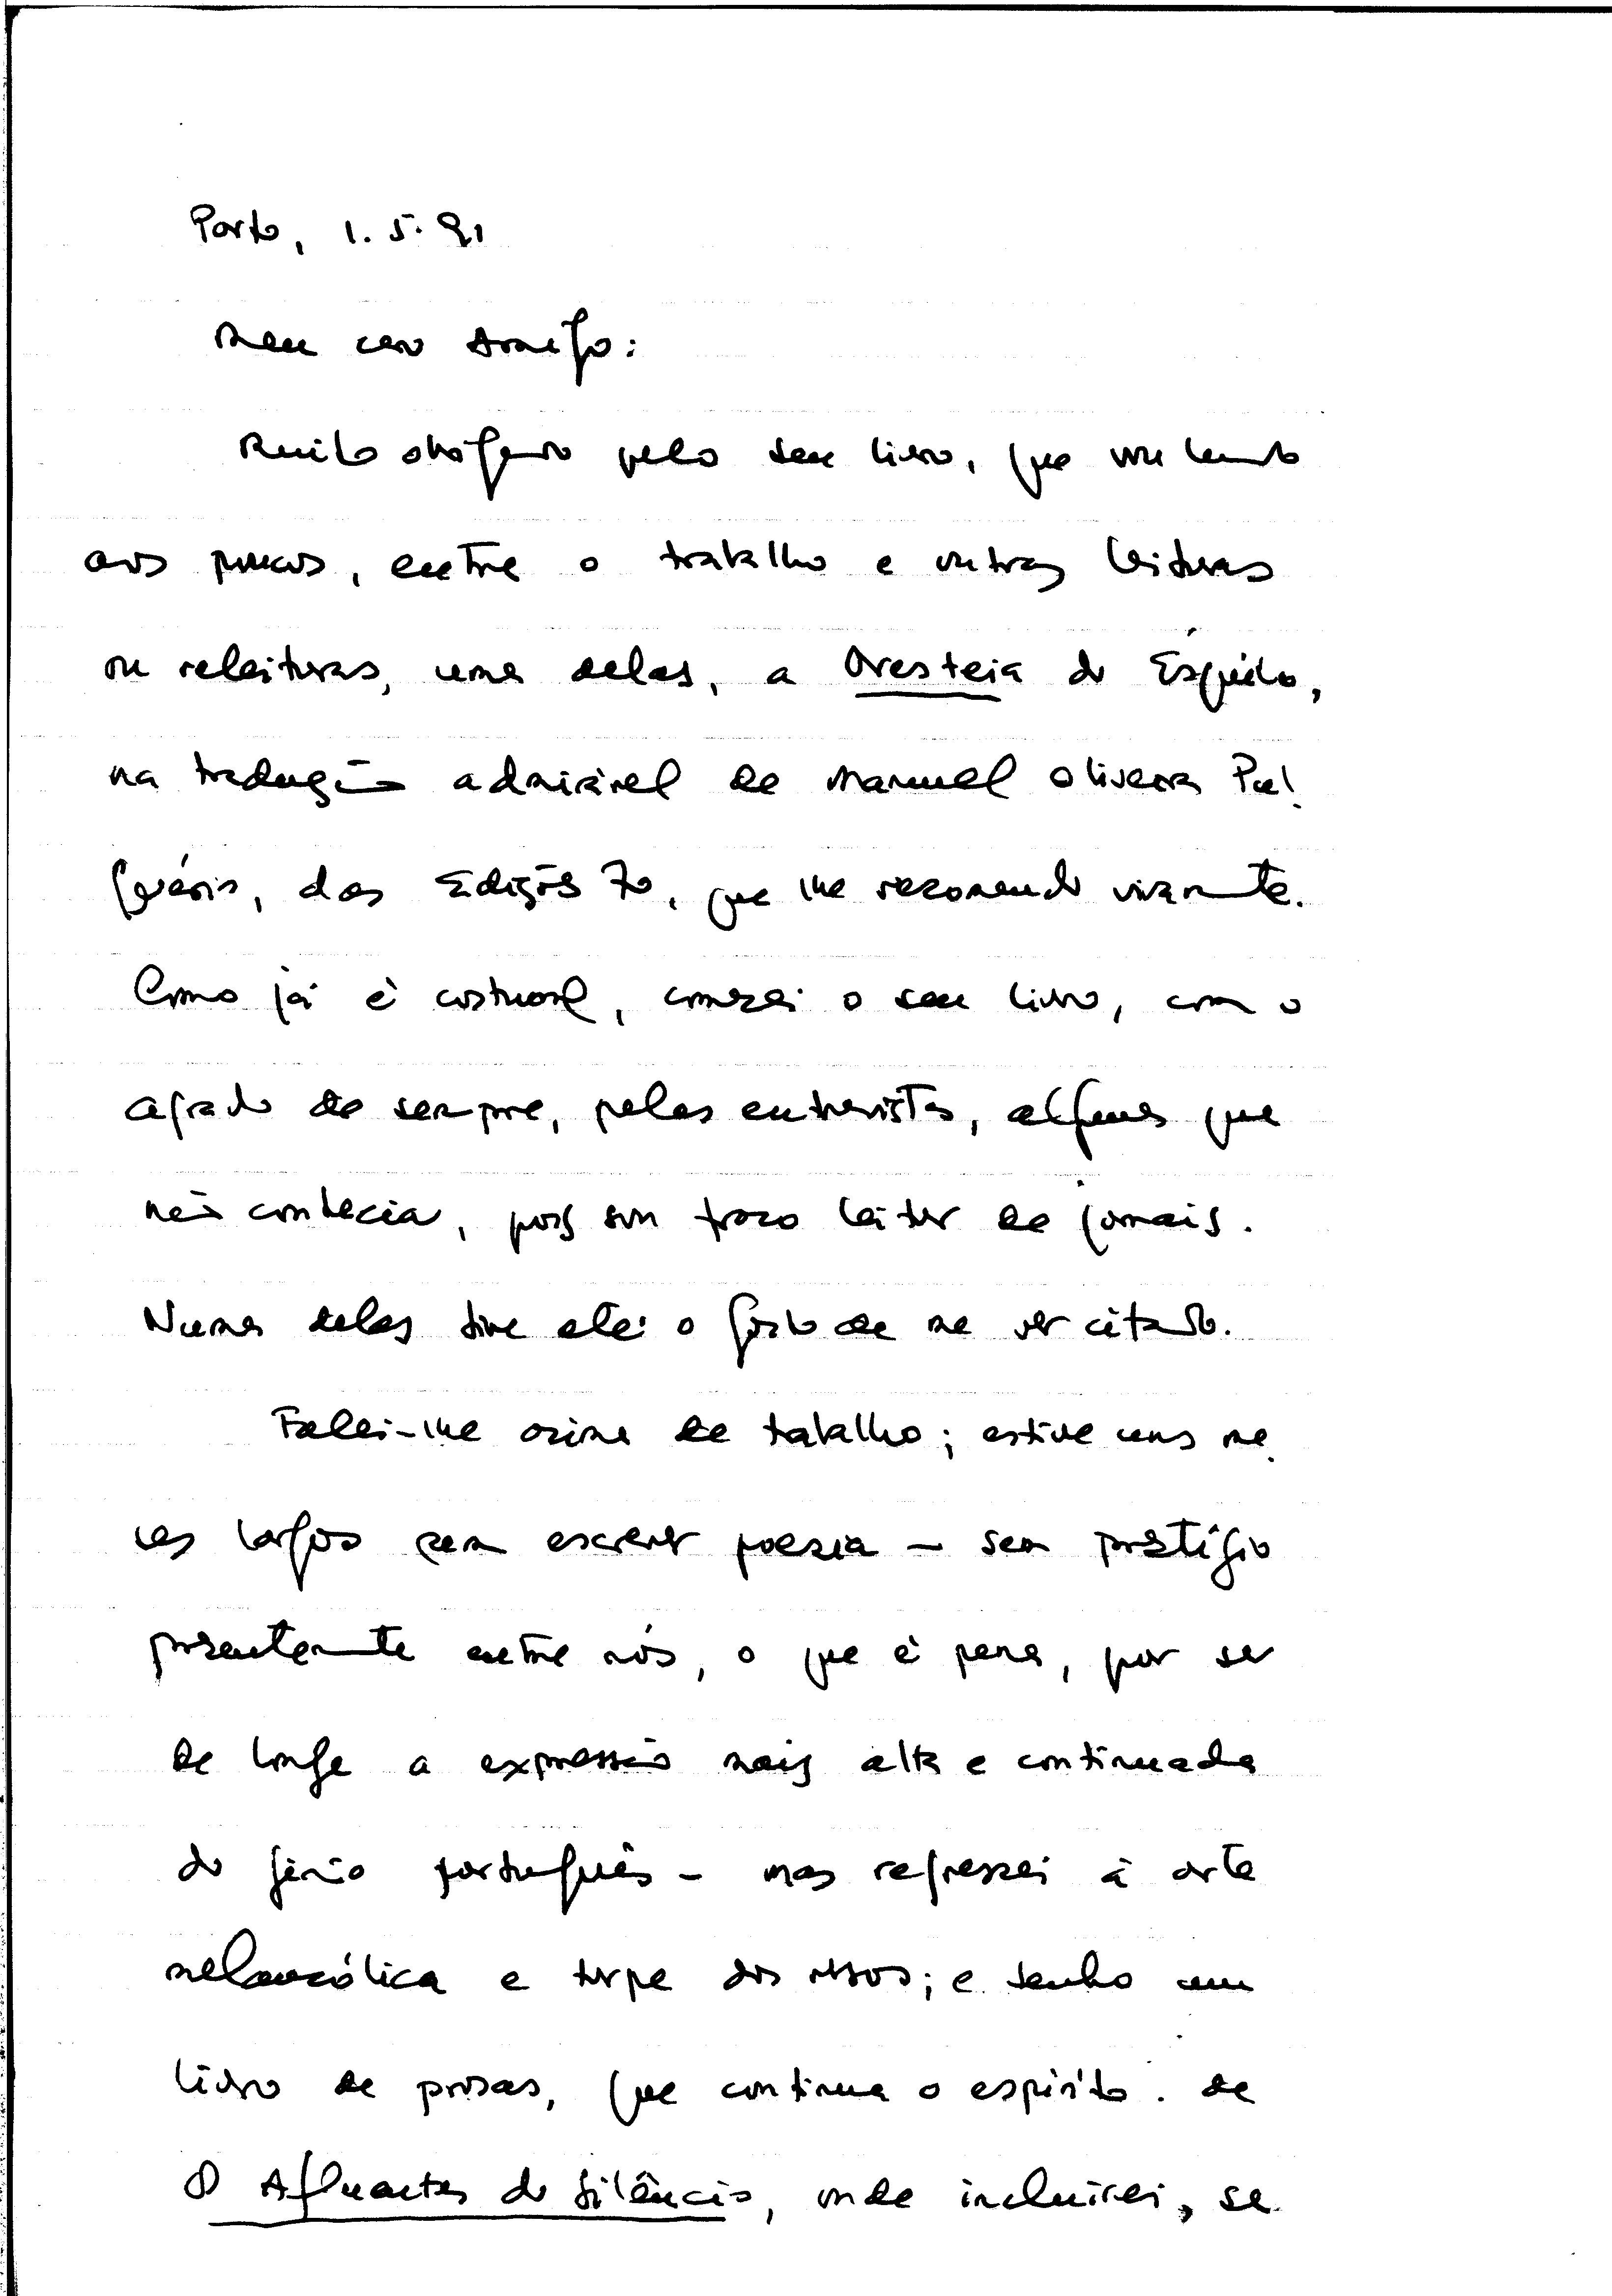 Porto, 1.5.91
Meu caro Amigo:
Muito obrigado pelo seu livro, que vou lendo
aos poucos, entre o trabalho e outras leituras
ou releituras, uma delas, a Oresteia de Ésquilo,
na tradução admirável de Manuel Oliveira Pul-
quério, das Edições 70, que lhe recomendo vivamente.
Como já é costume, comecei o seu livro, com o
agrado de sempre, pelas entrevistas, algumas que
não conhecia, pois sou fraco leitor de jornais.
Numa delas tive até o gosto de me ver citado.
Falei-lhe acima de trabalho; estive uns me-
ses largos sem escrever poesia – sem prestígio
presentemente entre nós, o que é pena, por ser
de longe a expressão mais alta e continuada
do génio português – mas regressei à arte
melancólica e torpe dos versos; e tenho um
livro de prosas, que continua o espírito de
Os Afluentes do Silêncio, onde incluirei, se